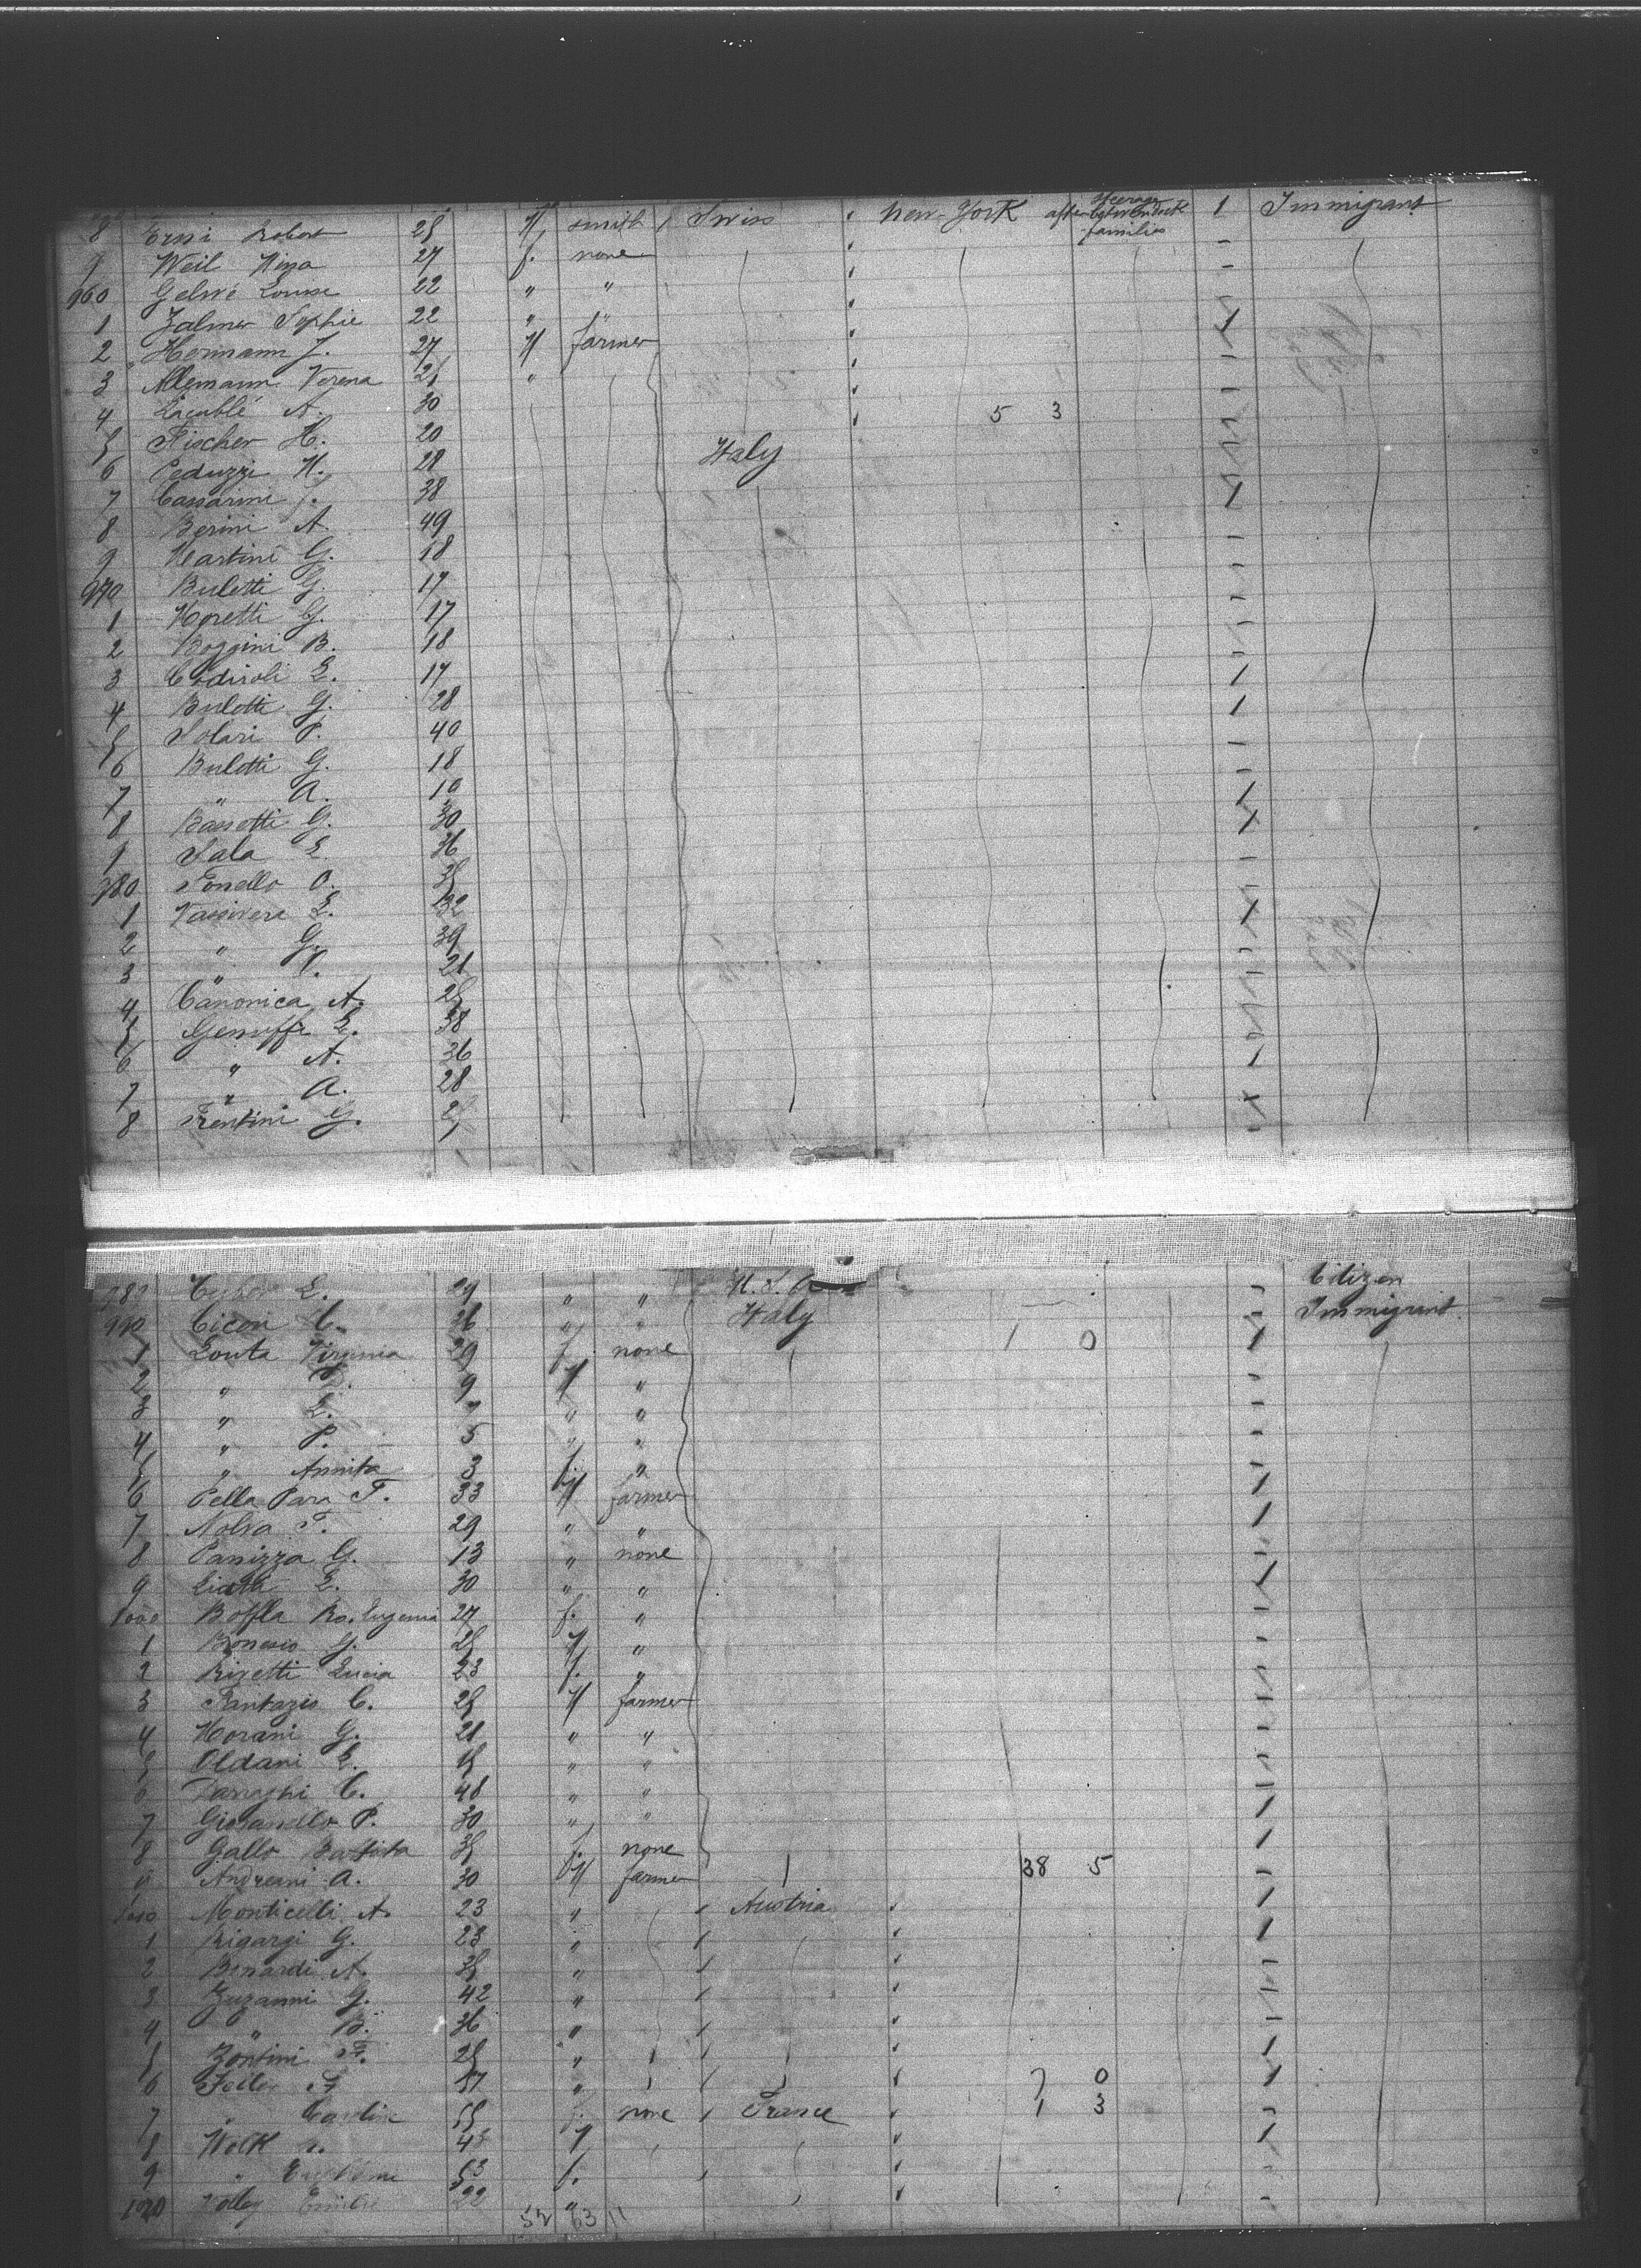 8 Erni Robert 25 M smith / Swiss " New-York after Steerage betwendeck families 1 Immigrant
9 Weil Nina 27 f. none
960 Gelwé Louise 22 " "
1 Zalmer Sophie 22 " "
2 Hermann J. 27 M farmer
3 Allemann Verena 25 "
4 Lacublé A. 30 5 3
5 Fischer H. 20
6 Peduzzi M. 28 Italy
7 Cassarini J. 38
8 Berini A. 49
9 Martini G. 18
970 Buletti G. 17
1 Moretti G. 17
2 Boggini B. 18
3 Codiroli E. 17
4 Buletti G. 28
5 Solari P. 40
6 Buletti G. 18
7 " A. 10
8 Bassetti G. 30
9 Sala E. 36
980 Tonello O. 35
1 Vassivera E. 32
2 " G. 39
3 " P. 21
4 Canonica A. 25
5 Genuffi E. 38
6 " A. 36
7 " A. 28
8 Trentini G. 25
989 E. 29 " " U.S.A. Citizen
990 Ciceri C. 26 " " Italy Immigrant
1 Louta Virginia 29 f. none 1 0
2 " 9 M "
3 " E. 7 " "
4 " P. 5 " "
5 " Annita 3 f. "
6 Pella Para F. 33 M farmer
7 Nolva F. 29 " "
8 Panizza G. 13 " none
9 Liatti E. 30 " "
1000 Boffla Ro. Eugenia 27 f. "
1 Bonesio G. 25 M "
2 Rivetti Lucia 23 f. "
3 Fantazio C. 25 M farmer
4 Morani G. 21 " "
5 Oldani E. 15 " "
6 C. 48 " "
7 Giovanello P. 30 " "
8 Gallo Battista 35 f. none
9 Andreani A. 30 M farmer 38 5
1010 Monticelli A. 23 " Austria
1 Rigargi G. 23 "
2 Benardi A. 35 "
3 Zuzanni G. 42 "
4 " B. 36 "
5 Zontini F. 25 "
6 F. 57 " 7 0
7 " 55 f. none France 1 3
8 Wolk 45 M
9 " 53 f.
1020 Emilie 22 "
52 63 11